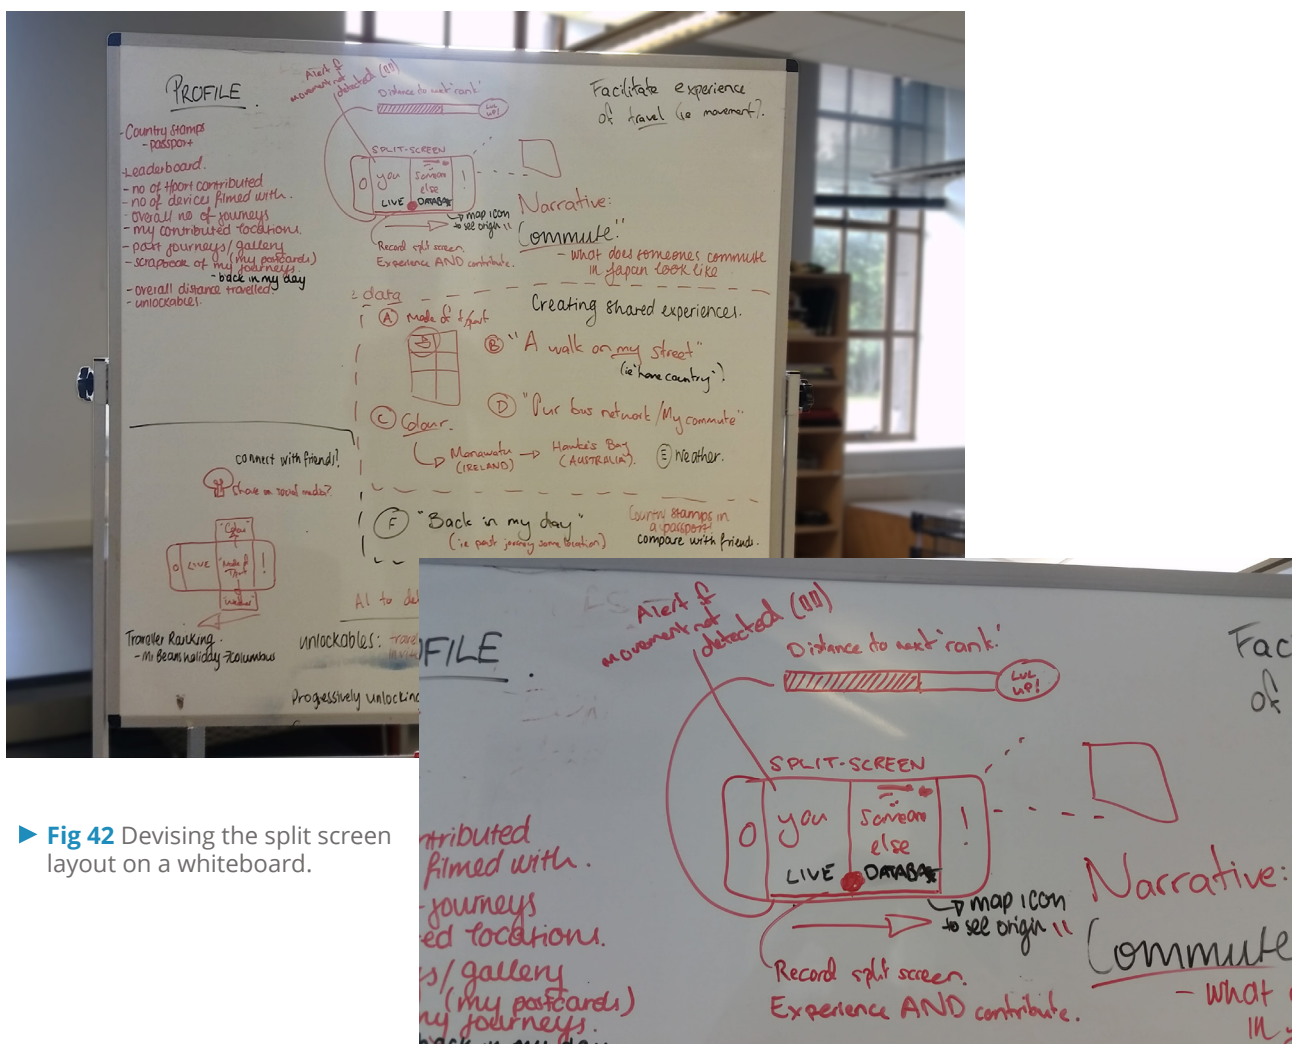 PROFILE.
- Country stamps
- passport
- Leaderboard.
- no of t/port contributed
- no of devices filmed with.
- overall no of journeys
- my contributed locations.
- past journeys/gallery
- scrapbook of (my postcards)
my journeys.
- back in my day
- overall distance travelled.
- unlockables.
Alert if
movement not
detected (00)
Distance to next 'rank'
LVL
UP!
SPLIT-SCREEN
you
Someone
else
!
LIVE
DATABASE
map icon
to see origin
Record split screen.
Experience AND contribute.
Facilitate experience
of travel (ie movement).
Narrative:
"Commute"
- what does someones commute
in Japan look like
data
Creating shared experiences.
A Mode of t/port
B "A walk on my street"
(ie "home country")
C Colour.
Manawatu
(IRELAND)
Hawke's Bay
(AUSTRALIA).
D "Our bus network/My commute"
E Weather.
F "Back in my day"
(ie past journey same location)
Country stamps in
a passport!
compare with friends.
connect with friends?
share on social media?
"Colour"
LIVE
"Mode of
T/port"
!
"Weather"
Traveller Ranking.
- Mr Beans holiday → Columbus
AI to de
unlockables: trave
Progressively unlocking
FILE.
Alert if
movement not
detected (00)
Distance to next 'rank'.
LVL
UP!
Fac
of
SPLIT-SCREEN
you
Someone
else
!
LIVE
DATABASE
map icon
to see origin
Record split screen.
Experience AND contribute.
Narrative:
Commute
- what
in
ntributed
filmed with.
-journeys
ed locations.
s/gallery
(my postcards)
my journeys.
back in my day
▶ Fig 42 Devising the split screen
layout on a whiteboard.